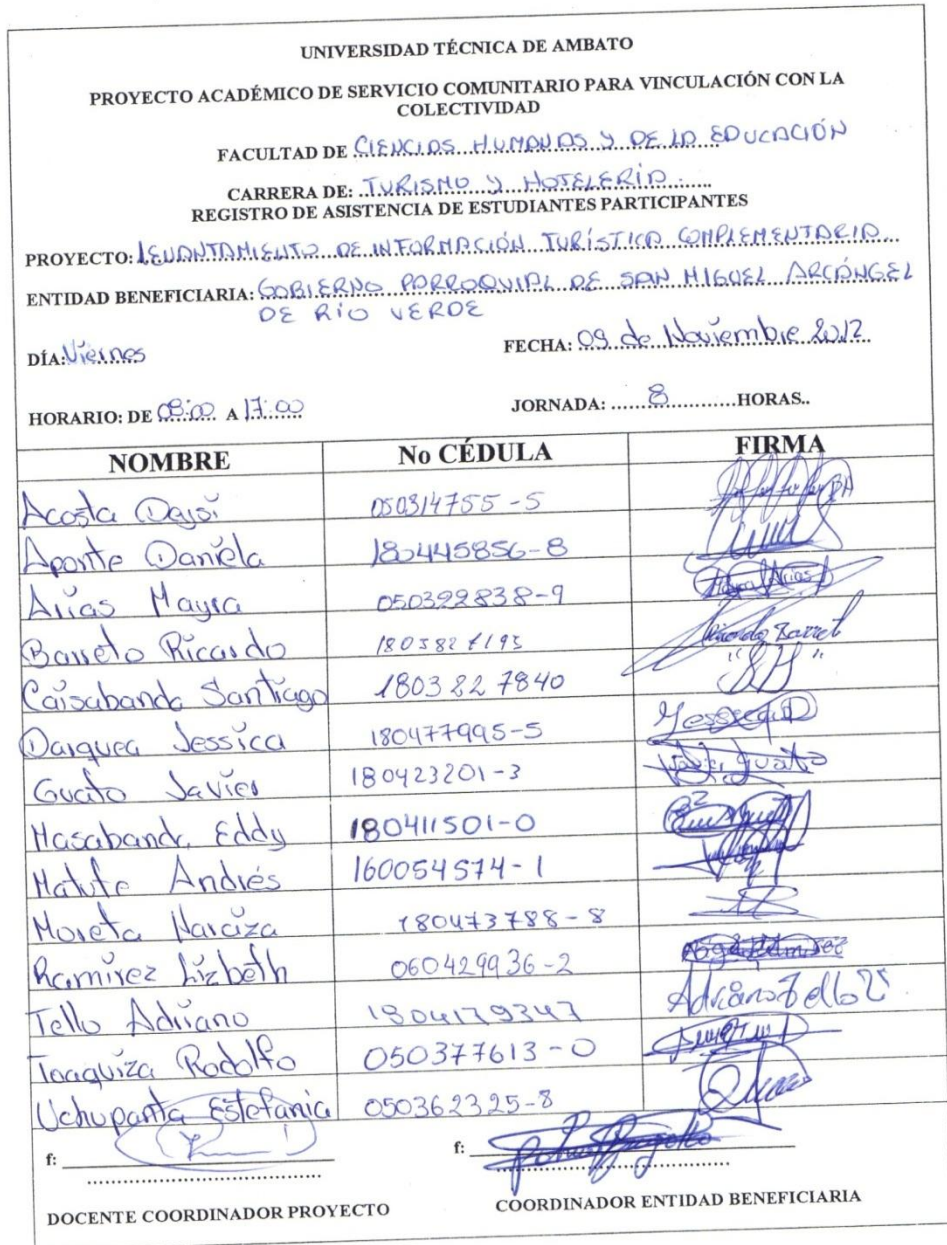 UNIVERSIDAD TÉCNICA DE AMBATO
PROYECTO ACADÉMICO DE SERVICIO COMUNITARIO PARA VINCULACIÓN CON LA
COLECTIVIDAD
FACULTAD DE CIENCIAS HUMANAS Y DE LA EDUCACIÓN
CARRERA DE: TURISMO Y HOTELERÍA
REGISTRO DE ASISTENCIA DE ESTUDIANTES PARTICIPANTES
PROYECTO: LEVANTAMIENTO DE INFORMACIÓN TURÍSTICA COMPLEMENTARIA
ENTIDAD BENEFICIARIA: GOBIERNO PARROQUIAL DE SAN MIGUEL ARCÁNGEL
DE RÍO VERDE
DÍA: Viernes FECHA: 09 de Noviembre 2012
HORARIO: DE 08:00 A 17:00 JORNADA: 8 HORAS..
NOMBRE No CÉDULA FIRMA
Acosta Deysi 050314755-5
Aponte Daniela 180445856-8
Arias Mayra 050322838-9 Mayra Arias
Barreto Ricardo Ricardo Barret
Caisabanda Santiago 1803227840
Darquea Jessica 180477995-5 Jessica D
Guato Javier 180423201-3 Javier Guato
Masabanda Eddy 180411501-0
Matute Andrés 160054574-1
Moreta Narciza 180473788-8
Ramírez Lizbeth 060429936-2
Tello Adriano 1804179347 Adriano Tello
Toaquiza Rodolfo 050377613-0
Uchupanta Estefania 050362325-8
f: f:
DOCENTE COORDINADOR PROYECTO COORDINADOR ENTIDAD BENEFICIARIA